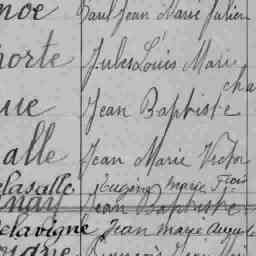 noe Paul Jean Marie Julien
porte Jules Louis Marie
que Jean Baptiste Cha
alle Jean Marie Victor
elasalle Eugène Marie
nay Jean Baptiste
delavigne Jean Marie Auguste
vigne François